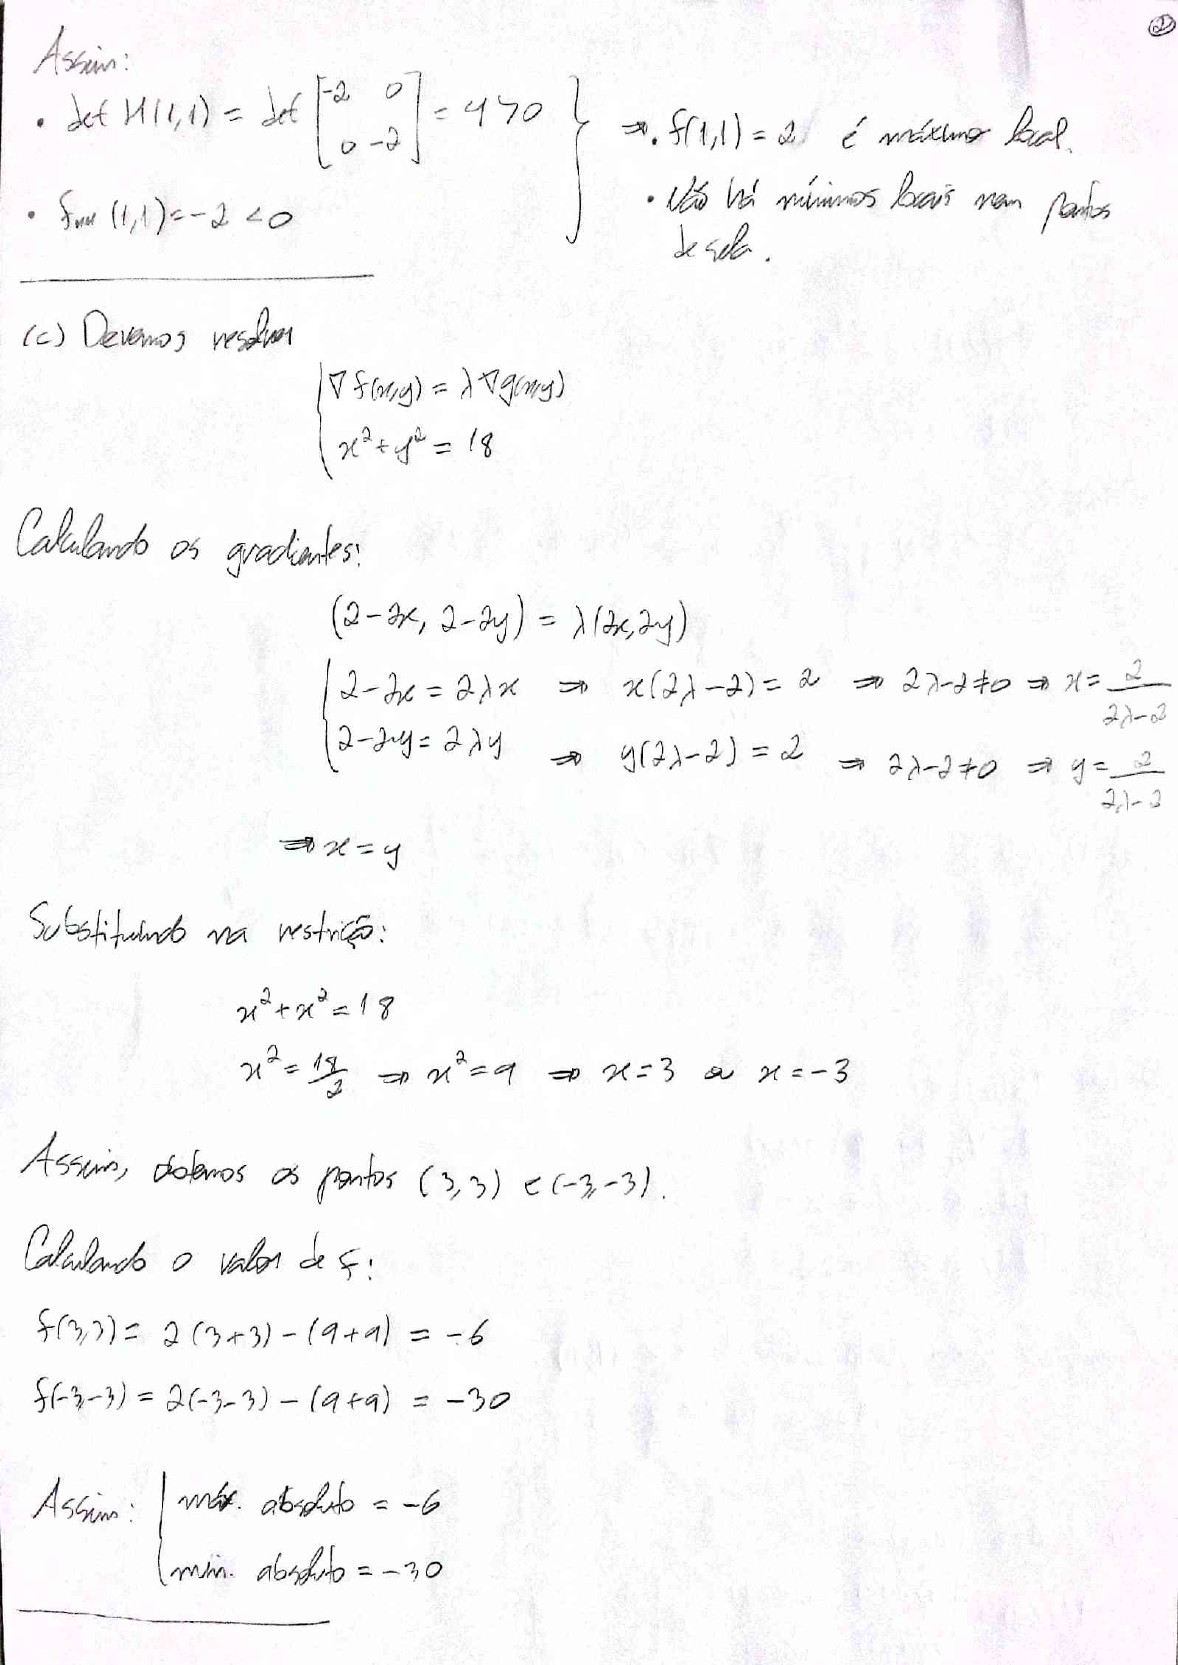 ②
Assim:
• det H(1,1) = det [-2 0 0 -2] = 4>0
• fxx (1,1)=-2 <0
⇒ • f(1,1) = 2 é máximo local.
• Não há mínimos locais nem pontos
de sela.
(c) Devemos resolver
∇f(x,y) = λ∇g(x,y)
x²+y² = 18
Calculando os gradientes:
(2-2x, 2-2y) = λ(2x,2y)
2-2x = 2λx ⇒ x(2λ-2) = 2 ⇒ 2λ-2≠0 ⇒ x = 2/(2λ-2)
2-2y = 2λy ⇒ y(2λ-2) = 2 ⇒ 2λ-2≠0 ⇒ y = 2/(2λ-2)
⇒ x = y
Substituindo na restrição:
x²+x² = 18
x² = 18/2 ⇒ x² = 9 ⇒ x=3 ou x=-3
Assim, obtemos os pontos (3,3) e (-3,-3).
Calculando o valor de f:
f(3,3) = 2(3+3)-(9+9) = -6
f(-3,-3) = 2(-3-3)-(9+9) = -30
Assim: máx. absoluto = -6
mín. absoluto = -30